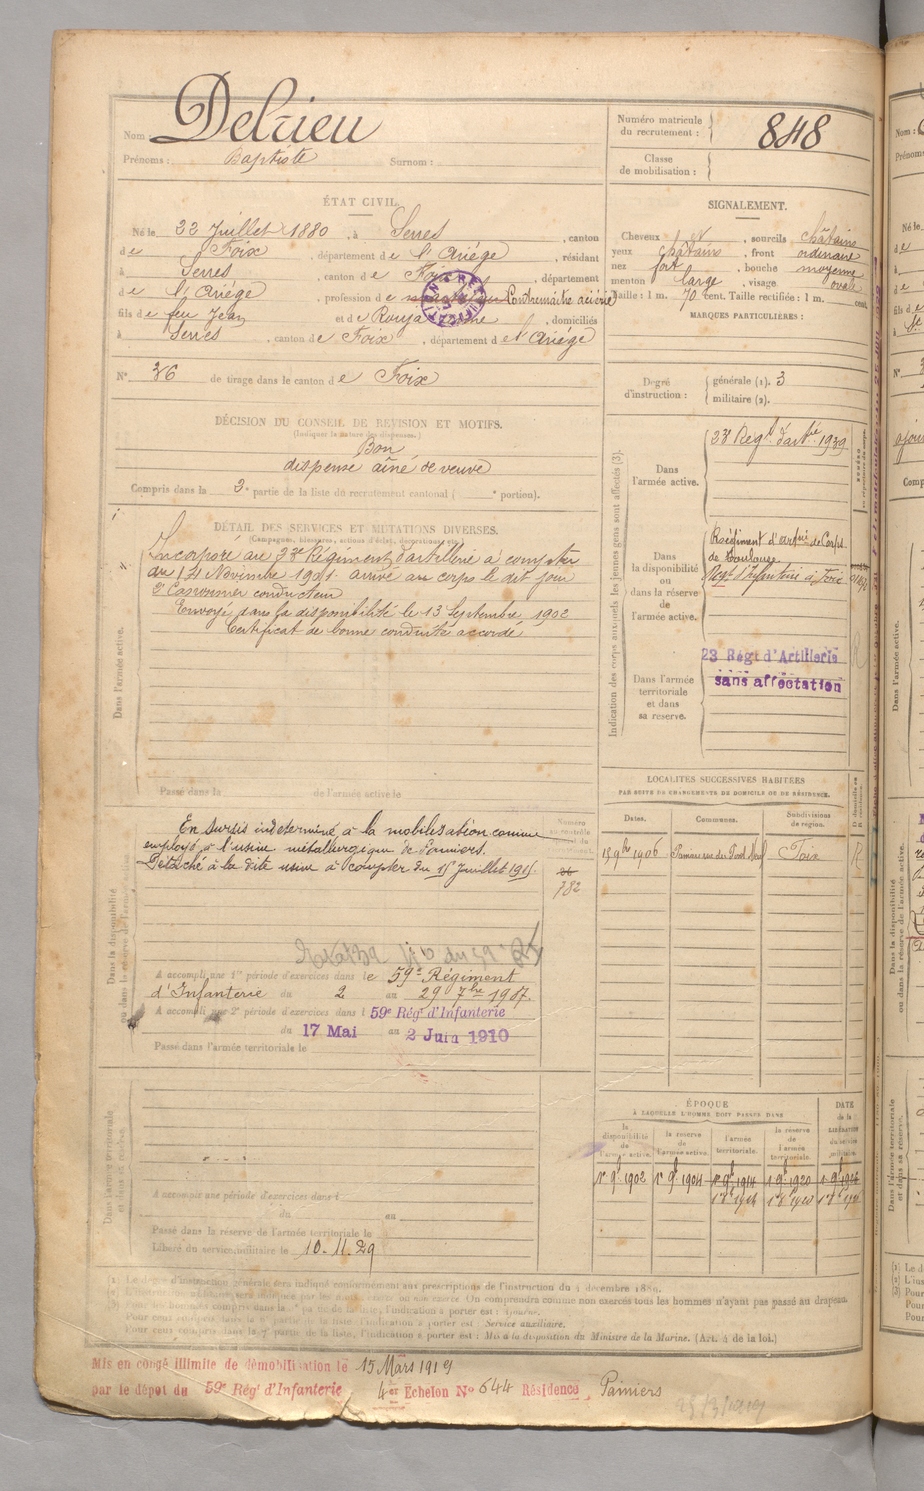 Nom : Delrieu
Prénoms : Baptiste Surnom :
Numéro matricule du recrutement : 848
Classe de mobilisation :
ÉTAT CIVIL.
Né le 22 Juillet 1880, à Serres, canton
de Foix, département de l'Ariège, résidant
à Serres, canton de Foix, département
de l'Ariège, profession de Contremaître aciérie
fils de feu Jean et de Rouja, domiciliés
à Serres, canton de Foix, département de l'Ariège
N° 36 de tirage dans le canton de Foix
SIGNALEMENT.
Cheveux, sourcils châtains
yeux châtains, front ordinaire
nez fort, bouche moyenne
menton large, visage ovale
Taille : 1 m. 70 cent. Taille rectifiée : 1 m. cent.
MARQUES PARTICULIÈRES :
Degré d'instruction : générale (1). 3
militaire (2).
DÉCISION DU CONSEIL DE REVISION ET MOTIFS.
(Indiquer la nature des dispenses.)
Bon
dispense aîné de veuve
Compris dans la 2e partie de la liste du recrutement cantonal ( e portion).
DÉTAIL DES SERVICES ET MUTATIONS DIVERSES.
(Campagnes, blessures, actions d'éclat, décorations, etc.)
Incorporé au 23e Régiment d'artillerie à compter
du 14 Novembre 1901. arrivé au corps le dit jour
2e Canonnier conducteur
Envoyé dans la disponibilité le 13 Septembre 1902
Certificat de bonne conduite accordé
Dans l'armée active.
Passé dans la de l'armée active le
Indication des corps auxquels les jeunes gens sont affectés (3).
Dans l'armée active.
23e Régt d'artie
Dans la disponibilité ou dans la réserve de l'armée active.
Régiment d'artie de Corps
de Toulouse
Régt d'Infanterie à Foix
Dans l'armée territoriale et dans sa reserve.
23 Régt d'Artillerie
sans affectation
LOCALITÉS SUCCESSIVES HABITÉES
PAR SUITE DE CHANGEMENTS DE DOMICILE OU DE RÉSIDENCE.
Dates. Communes. Subdivisions de région.
15 9bre 1906 Pamiers rue du Pont Neuf Foix R
Dans la disponibilité ou dans la réserve de l'armée active.
En sursis indéterminé à la mobilisation comme
employé à l'usine métallurgique de Pamiers.
Détaché à la dite usine à compter du 15 Juillet 1915.
782
A accompli une 1re période d'exercices dans le 59e Régiment
d'Infanterie du 2 au 29 7bre 1907.
A accompli une 2e période d'exercices dans l 59e Régt d'Infanterie
du 17 Mai au 2 Juin 1910
Passé dans l'armée territoriale le
ÉPOQUE
À LAQUELLE L'HOMME DOIT PASSER DANS
la disponibilité de l'armée active. la réserve de l'armée active. l'armée territoriale. la réserve de l'armée territoriale. DATE de la LIBÉRATION du service militaire.
1er 9bre 1902 1er 9bre 1904 1er 9bre 1914 1 9bre 1920
Dans l'armée territoriale et dans sa réserve.
A accompli une période d'exercices dans l
du au
Passé dans la réserve de l'armée territoriale le
Libéré du service militaire le 10. 11. 29
(1) Le degré d'instruction générale sera indiqué conformément aux prescriptions de l'instruction du 4 décembre 1889.
On comprendra comme non exercés tous les hommes n'ayant pas passé au drapeau.
l'indication à porter est : Service auxiliaire.
Pour ceux compris dans la 7e partie de la liste, l'indication à porter est : Mis à la disposition du Ministre de la Marine. (Art. 4 de la loi.)
Mis en congé illimité de démobilisation le 15 Mars 1919
par le dépôt du 59e Régt d'Infanterie 4e Echelon No 644 Résidence Pamiers